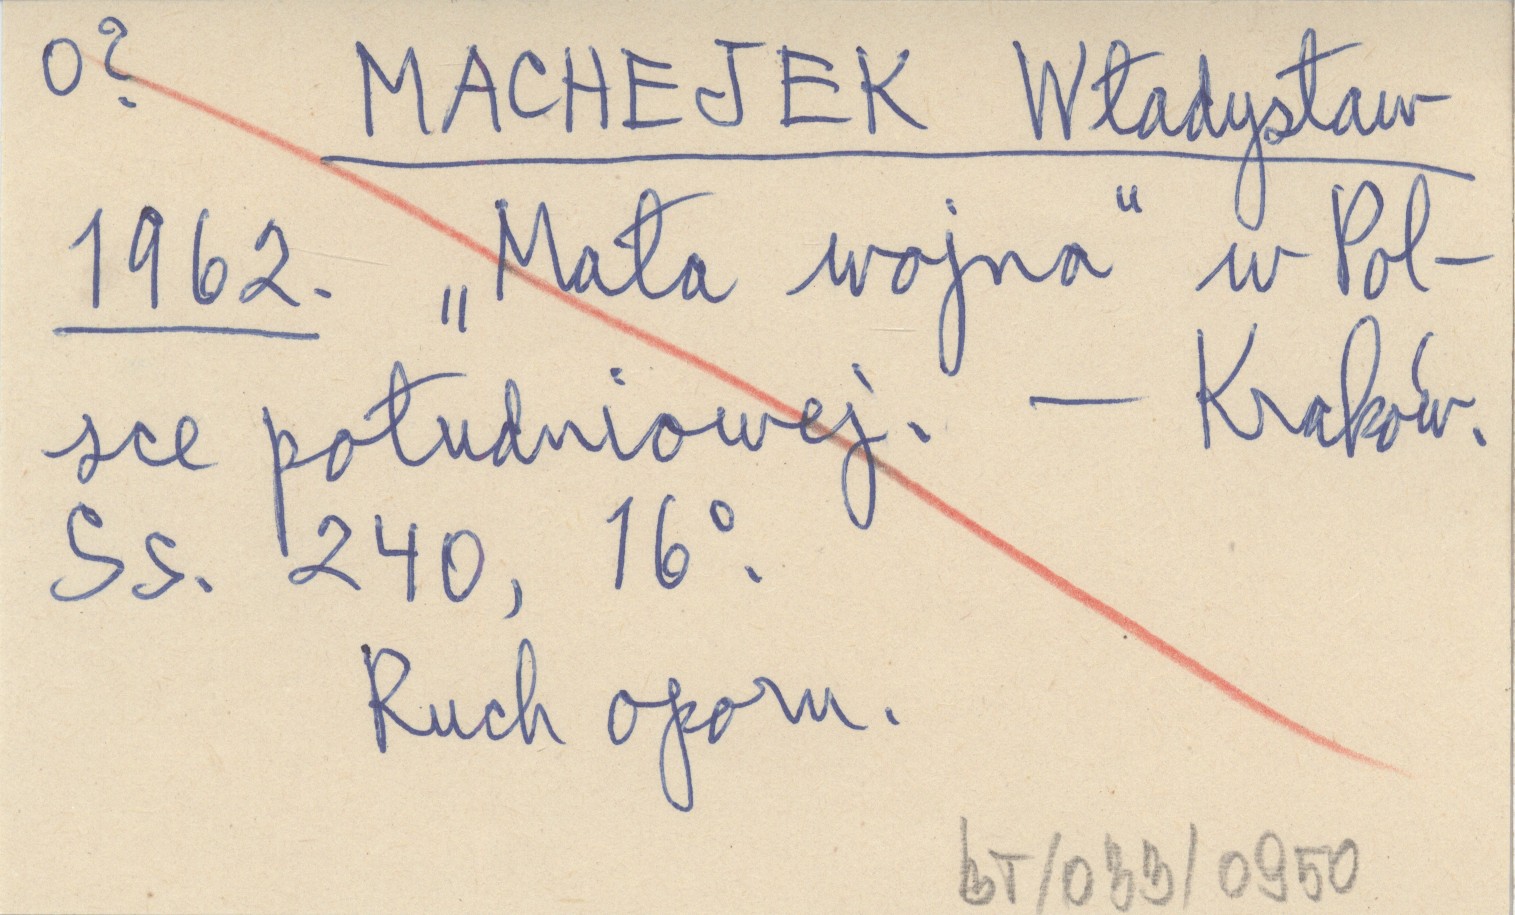 o? MACHEJEK Władysław
1962. „Mała wojna" w Pol-
sce południowej. — Kraków.
Ss. 240, 16°.
Ruch oporu.
bT/033/0950